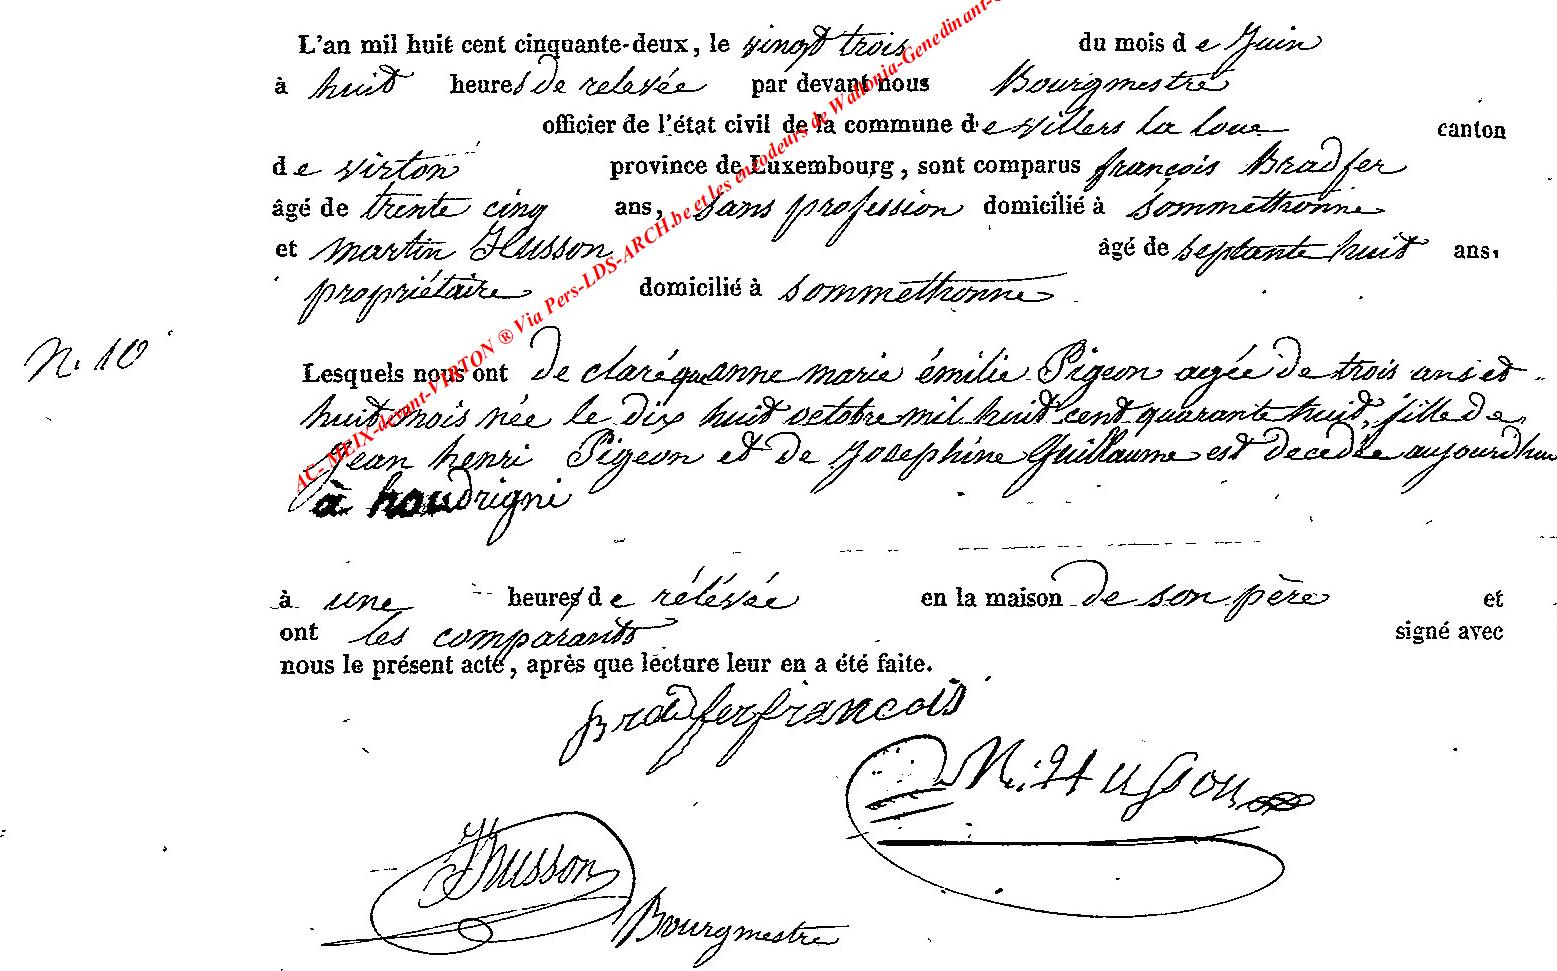 L'an mil huit cent cinquante-deux, le vingt trois du mois de Juin
à huit heures de relevée par devant nous Bourgmestre
officier de l'état civil de la commune de villers la loue canton
de virton province de Luxembourg, sont comparus françois Bradfer
âgé de trente cinq ans, sans profession domicilié à Sommethonne
et martin Husson âgé de septante huit ans,
propriétaire domicilié à Sommethonne
N. 10
Lesquels nous ont de claré que anne marie émilie Pigeon agée de trois ans et
huit mois née le dix huit octobre mil huit cent quarante huit, fille de
Jean henri Pigeon et de Josephine Guillaume est decedée aujourdhui
à houdrigni
à une heures de rélévée en la maison de son père et
ont les comparants signé avec
nous le présent acte, après que lecture leur en a été faite.
Bradfer francois
M. Husson
Husson
Bourgmestre
AC-MEIX-devant-VIRTON ® Via Pers-LDS-ARCH.be et les encodeurs de Wallonia-Genedinant-